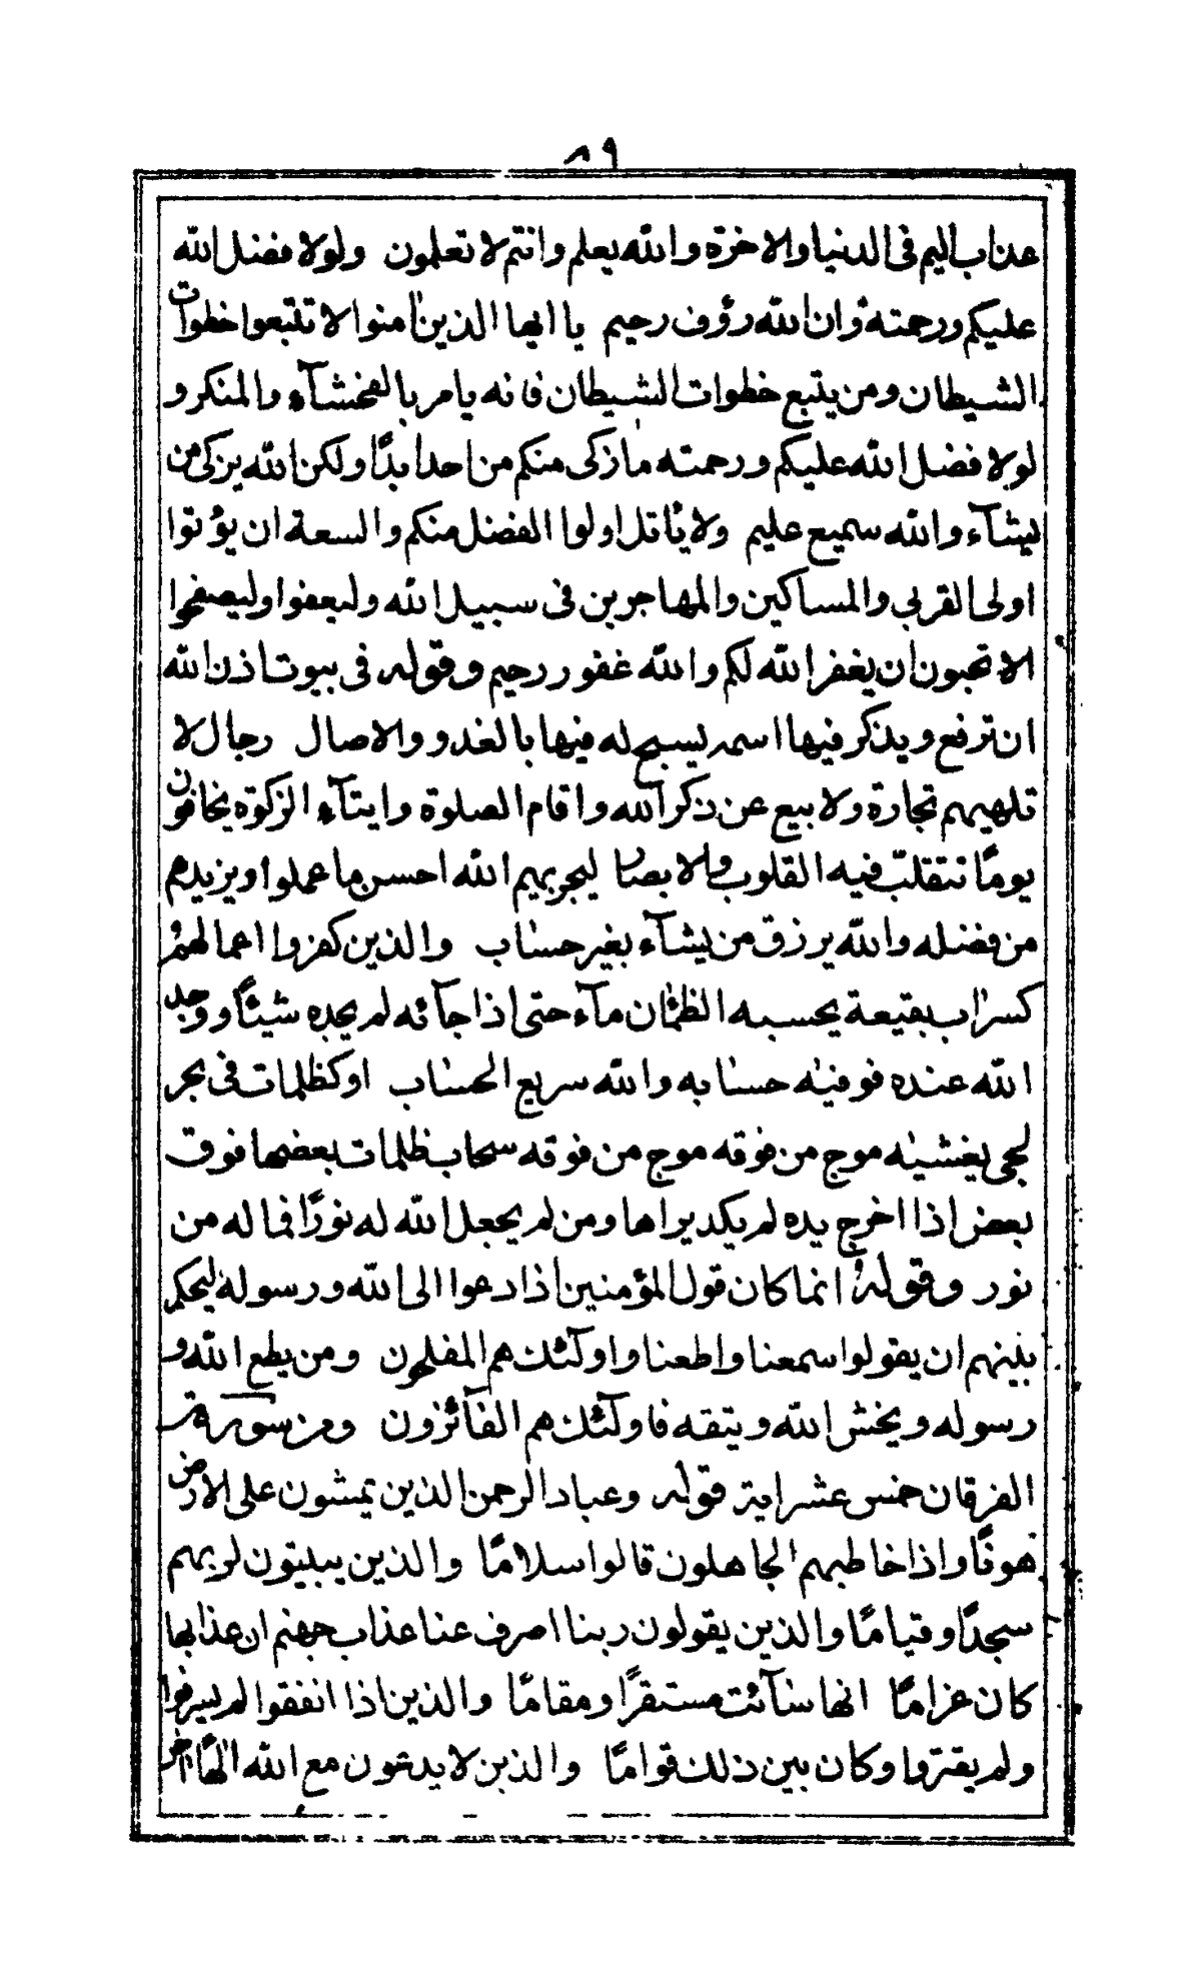 ٨٩
عذاب اليم فى الدنيا والاخرة والله يعلم وانتم لا تعلمون ولولا فضل الله
عليكم ورحمته وان الله رؤف رحيم يا ايها الذين امنوا لا تتبعوا خطوات
الشيطان ومن يتبع خطوات الشيطان فانه يامر بالفحشآء والمنكر و
لولا فضل الله عليكم ورحمته ما زكى منكم من احد ابدًا ولكن الله يزكى من
يشآء والله سميع عليم ولا يأتل اولوا الفضل منكم والسعة ان يؤتوا
اولى القربى والمساكين والمهاجرين فى سبيل الله وليعفوا وليصفحوا
الا تحبون ان يغفر الله لكم والله غفور رحيم وقوله فى بيوت اذن الله
ان ترفع ويذكر فيها اسمه يسبح له فيها بالغدو والاصال رجال لا
تلهيهم تجارة ولا بيع عن ذكر الله واقام الصلوة وايتآء الزكوة يخافون
يومًا تتقلب فيه القلوب والابصار ليجزيهم الله احسن ما عملوا ويزيدهم
من فضله والله يرزق من يشآء بغير حساب والذين كفروا اعمالهم
كسراب بقيعة يحسبه الظمئان مآء حتى اذا جآئه لم يجده شيئًا ووجد
الله عنده فوفيٰه حسابه والله سريع الحساب او كظلمات فى بحر
لجى يغشيٰه موج من فوقه موج من فوقه سحاب ظلمات بعضها فوق
بعض اذا اخرج يده لم يكد يراها ومن لم يجعل الله له نورًا فما له من
نور وقوله انما كان قول المؤمنين اذا دعوا الى الله ورسوله ليحكم
بينهم ان يقولوا سمعنا واطعنا واولٓئك هم المفلحون ومن يطع الله و
رسوله ويخش الله ويتقه فاولٓئك هم الفآئزون ومن سورة
الفرقان خمس عشر اية قوله وعباد الرحمن الذين يمشون على الارض
هونًا واذا خاطبهم الجاهلون قالوا سلامًا والذين يبيتون لربهم
سجدًا وقيامًا والذين يقولون ربنا اصرف عنا عذاب جهنم ان عذابها
كان غرامًا انها سآئت مستقرًا ومقامًا والذين اذا انفقوا لم يسرفوا
ولم يقتروا وكان بين ذلك قوامًا والذين لا يدعون مع الله الٰهًا اخر